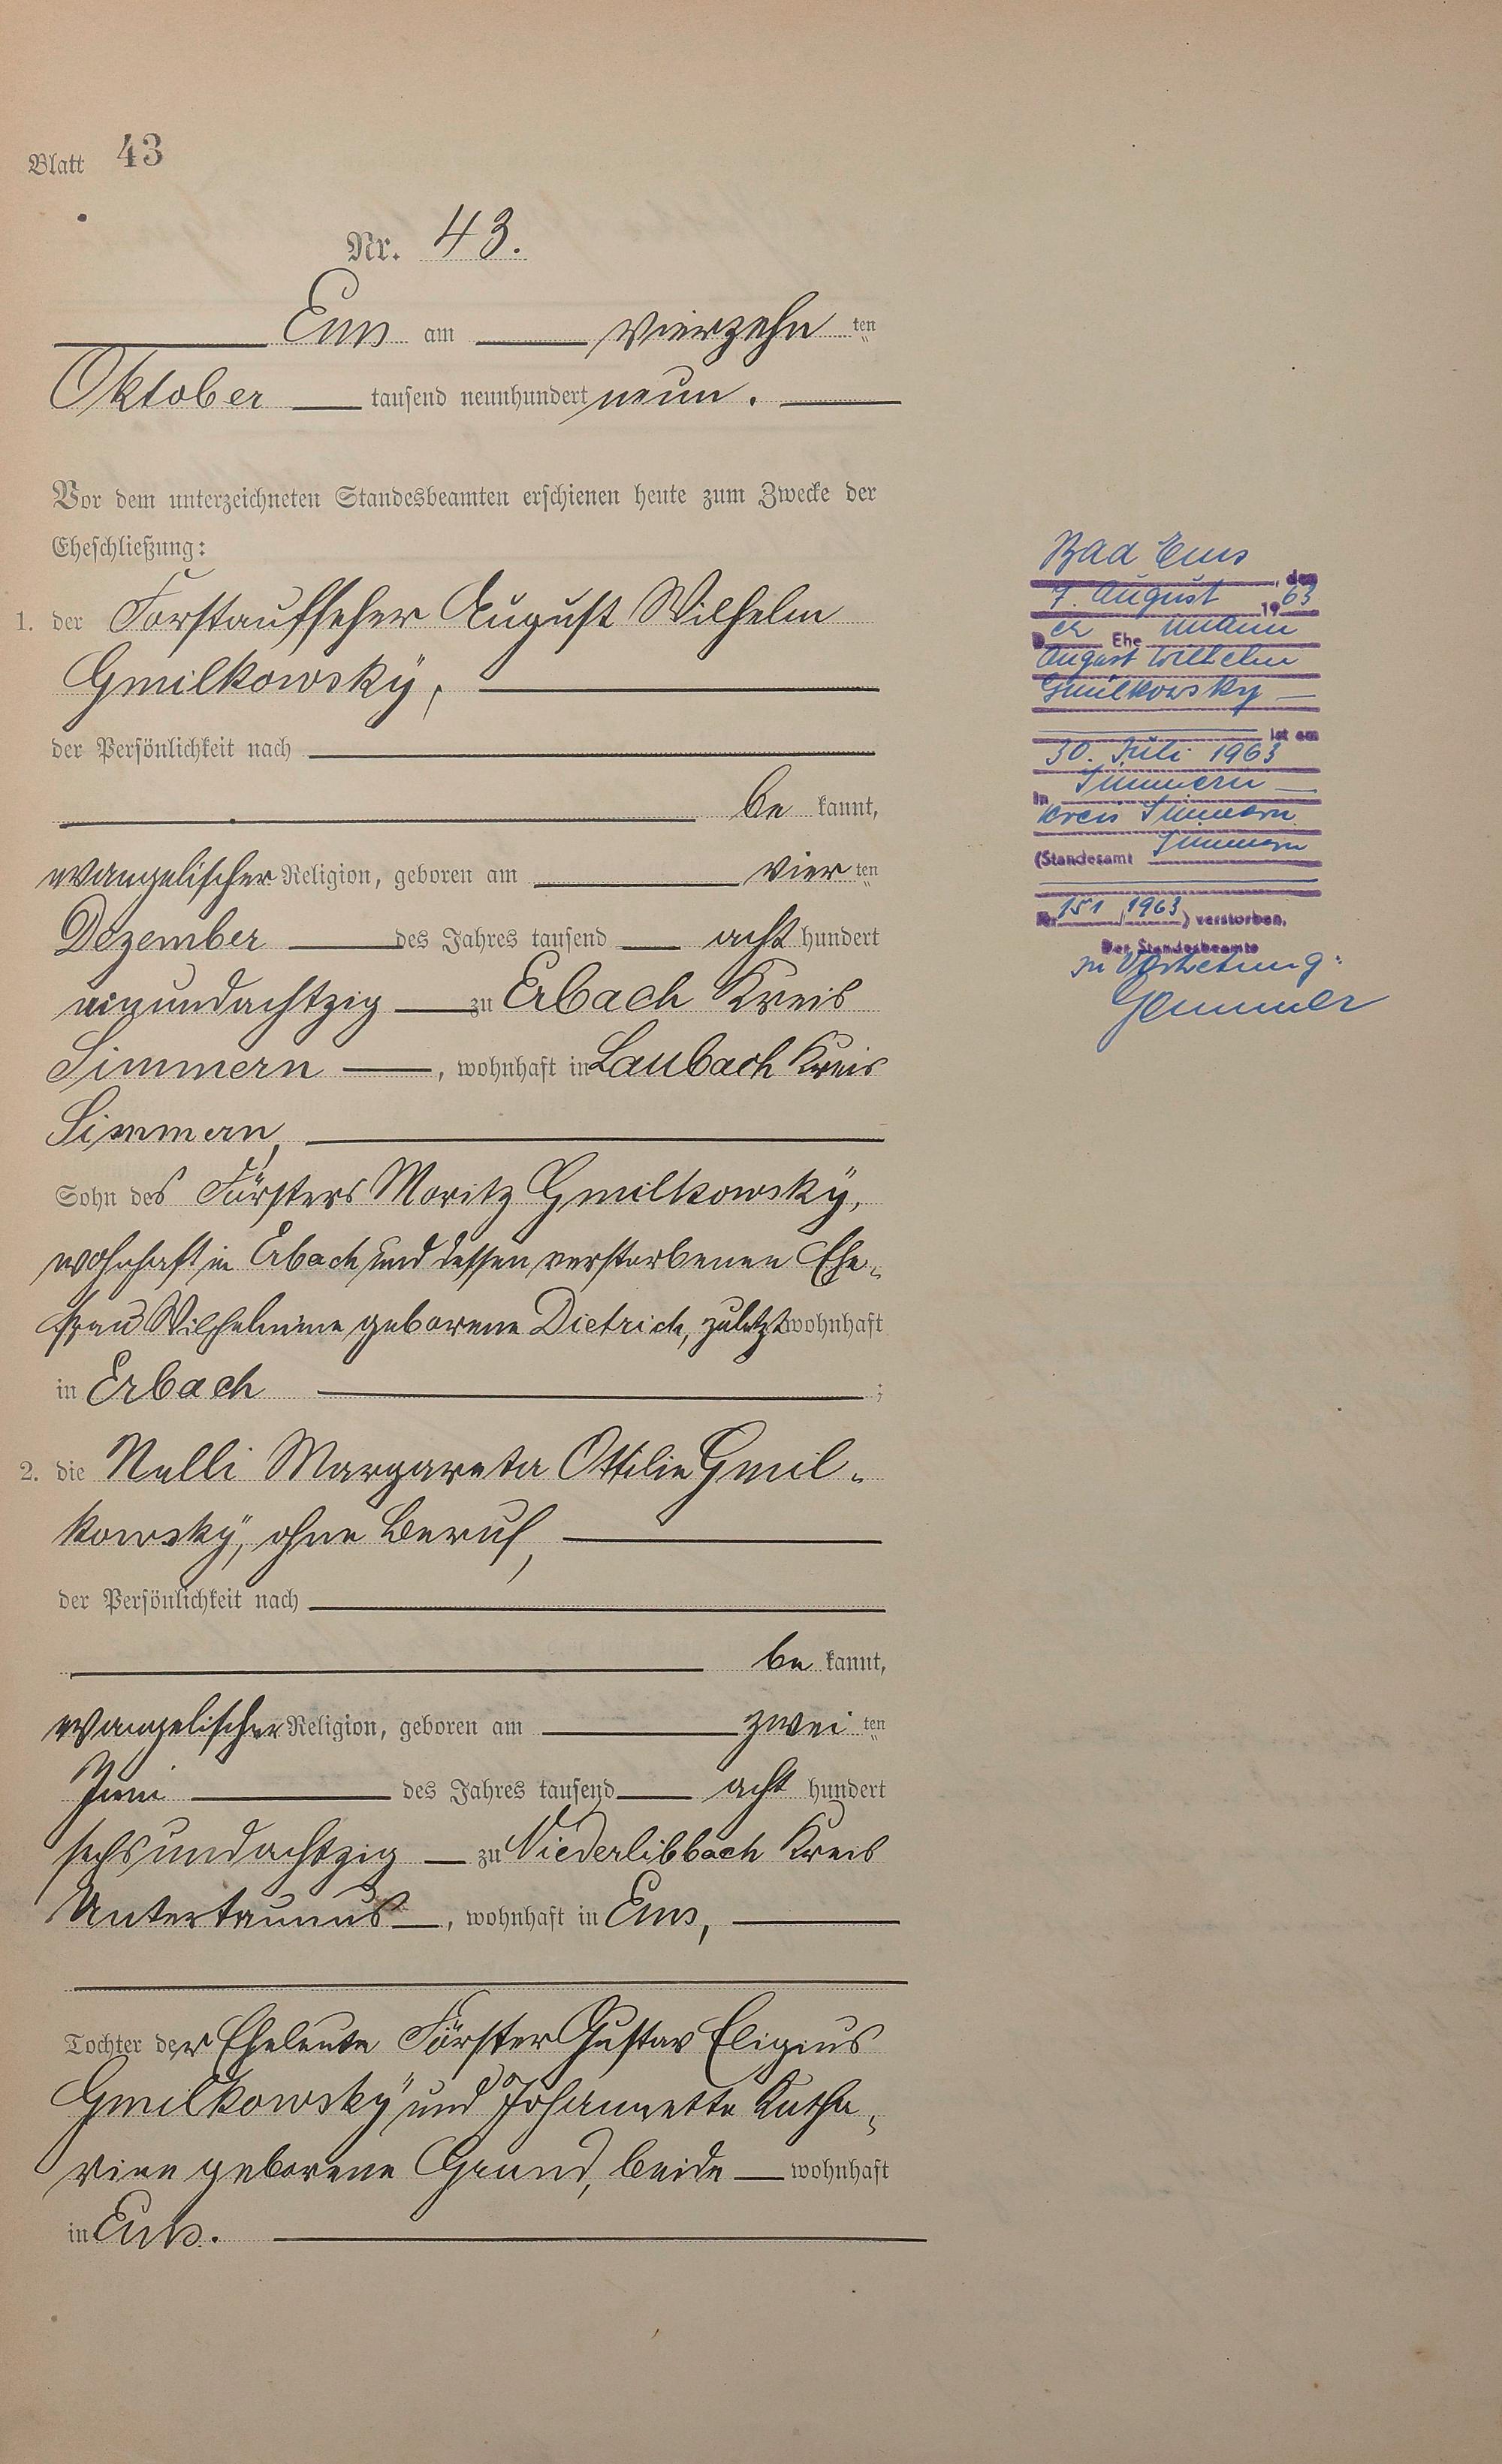 Blatt 43
Nr. 43.
Ems am vierzehn ten
Oktober tausend neunhundert neun.
Vor dem unterzeichneten Standesbeamten erschienen heute zum Zwecke der
Eheschließung:
1. der Forstaufseher August Wilhelm
Gmilkowsky,
der Persönlichkeit nach
be kannt,
evangelischer Religion, geboren am vier ten
Dezember des Jahres tausend acht hundert
einundachtzig zu Erbach Kreis
Simmern, wohnhaft in Laubach Kreis
Simmern,
Sohn des Försters Moritz Gmilkowsky,
wohnhaft in Erbach und dessen verstorbenen Ehe-
frau Wilhelmine geborene Dietrich, zuletzt wohnhaft
in Erbach ;
2. die Nelli Margareta Ottilie Gmil-
kowsky, ohne Beruf,
der Persönlichkeit nach
be kannt,
evangelischer Religion, geboren am zwei ten
Juni des Jahres tausend acht hundert
sechsundachtzig zu Niederlibbach Kreis
Untertaunus, wohnhaft in Ems,
Tochter der Eheleute Förster Gustav Eligius
Gmilkowsky und Johannette Katha-
rine geborene Grund, beide wohnhaft
in Ems.
Bad Ems, den
7. August 1963
Der Ehe mann
August Wilhelm
Gmilkowsky
ist am
30. Juli 1963
in Simmern
Kreis Simmern
(Standesamt Simmern
Nr 151/1963) verstorben.
Der Standesbeamte
In Vertretung: